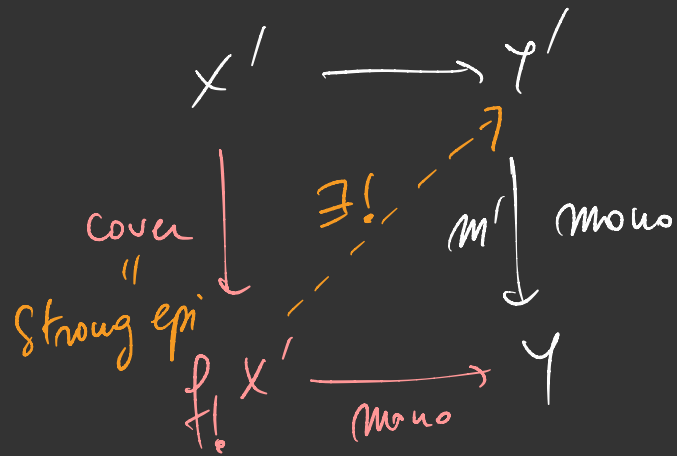 X' Y'
∃!
cover m' mono
=
strong epi
f! X' Y
mono